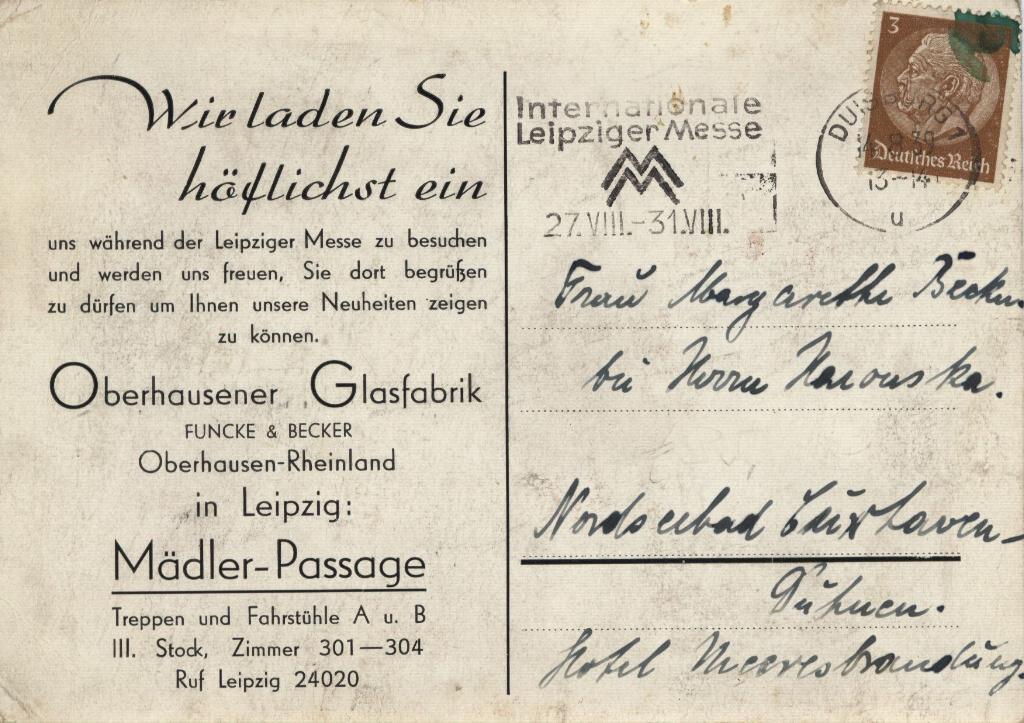 Wir laden Sie
höflichst ein
uns während der Leipziger Messe zu besuchen
und werden uns freuen, Sie dort begrüßen
zu dürfen um Ihnen unsere Neuheiten zeigen
zu können.
Oberhausener Glasfabrik
FUNCKE & BECKER
Oberhausen-Rheinland
in Leipzig:
Mädler-Passage
Treppen und Fahrstühle A u. B
III. Stock, Zimmer 301—304
Ruf Leipzig 24020
Internationale
Leipziger Messe
27.VIII.-31.VIII.
3
Deutsches Reich
DUISBURG 1
13-14
u
Frau Margarethe Becker
bei Herrn
Nordseebad Cuxhaven-
Duhnen.
Hotel Meeresbrandung.